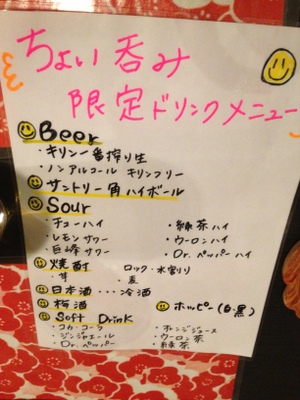 ちょい呑み
限定ドリンクメニュー
Beer
・キリン一番搾り生
・ノンアルコール キリンフリー
サントリー角ハイボール
Sour
・チューハイ ・緑茶ハイ
・レモンサワー ・ウーロンハイ
・巨峰サワー ・Dr.ペッパーハイ
焼酎 ロック・水割り
・芋 ・麦
日本酒...冷酒
梅酒 ホッピー(白・黒)
Soft Drink
・コカ・コーラ ・オレンジジュース
・ジンジャエール ・ウーロン茶
・Dr.ペッパー ・緑茶